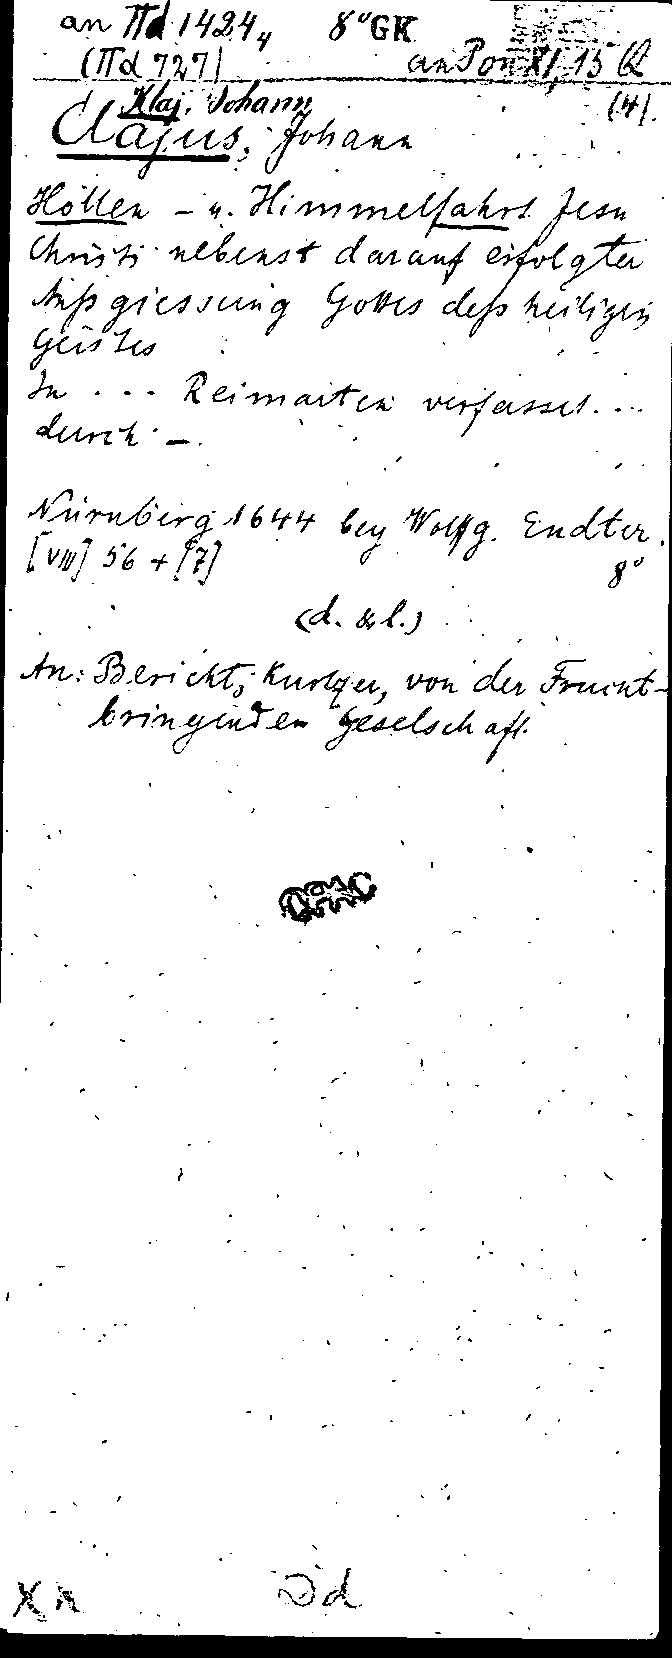 an Πd 1424, 8° GK
(Πd 727) an Pon XI, 15 Q
Klaj, Johann (4).
Clajus, Johann
Höllen – u. Himmelfahrt Jesu
Christi nebenst darauf erfolgter
Außgiessung Gottes deß heiligen
Geistes
In ... Reimarten verfasset ...
durch –.
Nürnberg 1644 bey Wolfg. Endter.
[VIII] 56 + [7] 8°
(d. & l.)
An: Bericht, Kurtzer, von der Frucht-
bringenden Geselschaft.
Dd